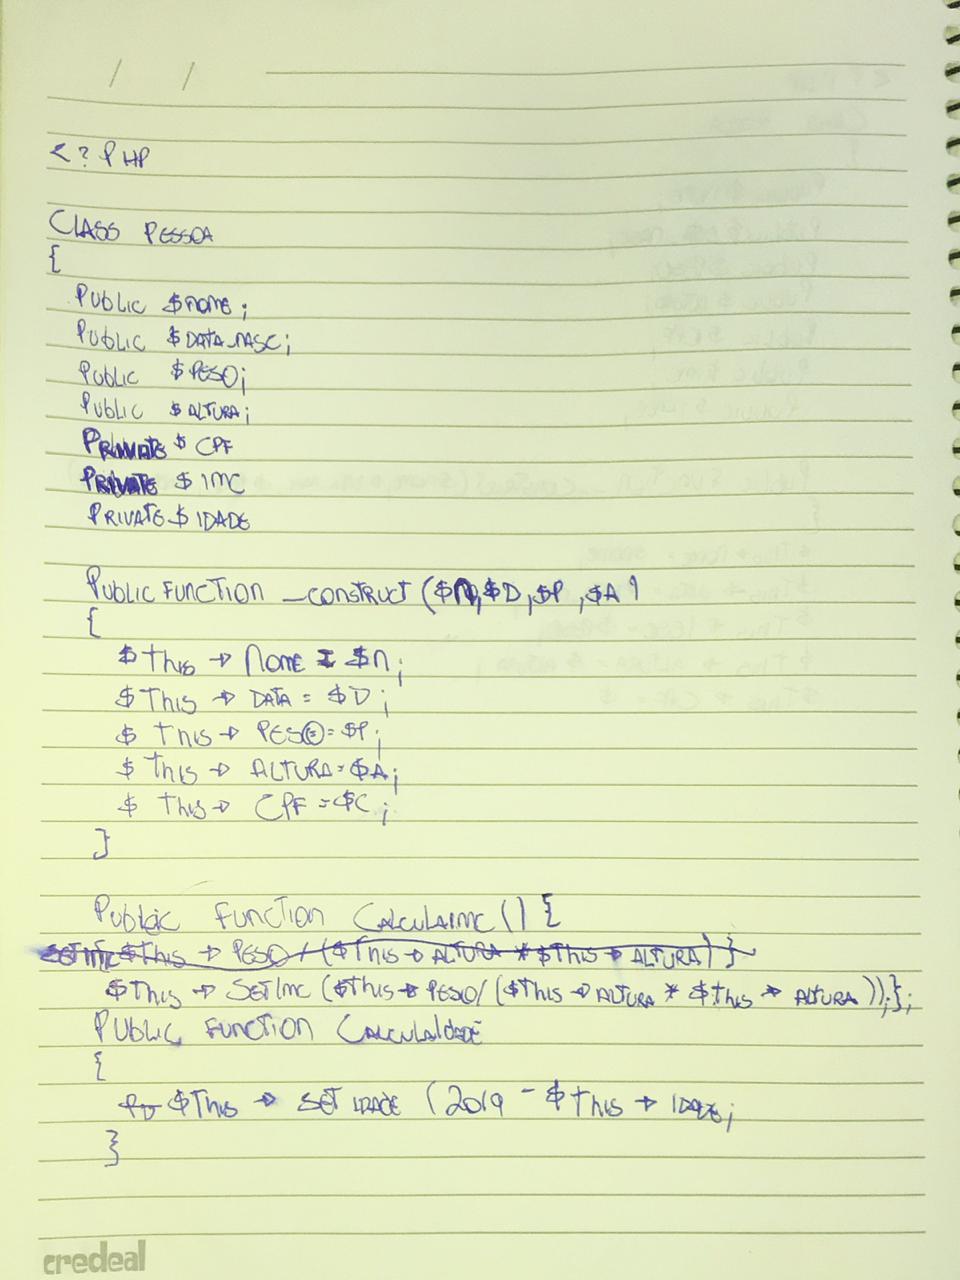 / /
<? PHP
CLASS PESSOA
{
PUBLIC $NOME;
PUBLIC $DATA_NASC;
PUBLIC $PESO;
PUBLIC $ALTURA;
PRIVATE $ CPF
PRIVATE $ IMC
PRIVATE $ IDADE
PUBLIC FUNCTION _CONSTRUCT ($N,$D,$P,$A)
{
$ This → NOME = $N;
$ This → DATA = $D;
$ This → PESO = $P;
$ This → ALTURA = $A;
$ This → CPF = $C;
}
PUBLIC FUNCTION CALCULAIMC () {
SETIMC $This → PESO / ($This → ALTURA * $This → ALTURA) }
$This → SETIMC ($This → PESO / ($This → ALTURA * $This → ALTURA));};
PUBLIC FUNCTION CALCULAIDADE
{
$This → SET IDADE (2019 - $This → IDADE;
}
credeal